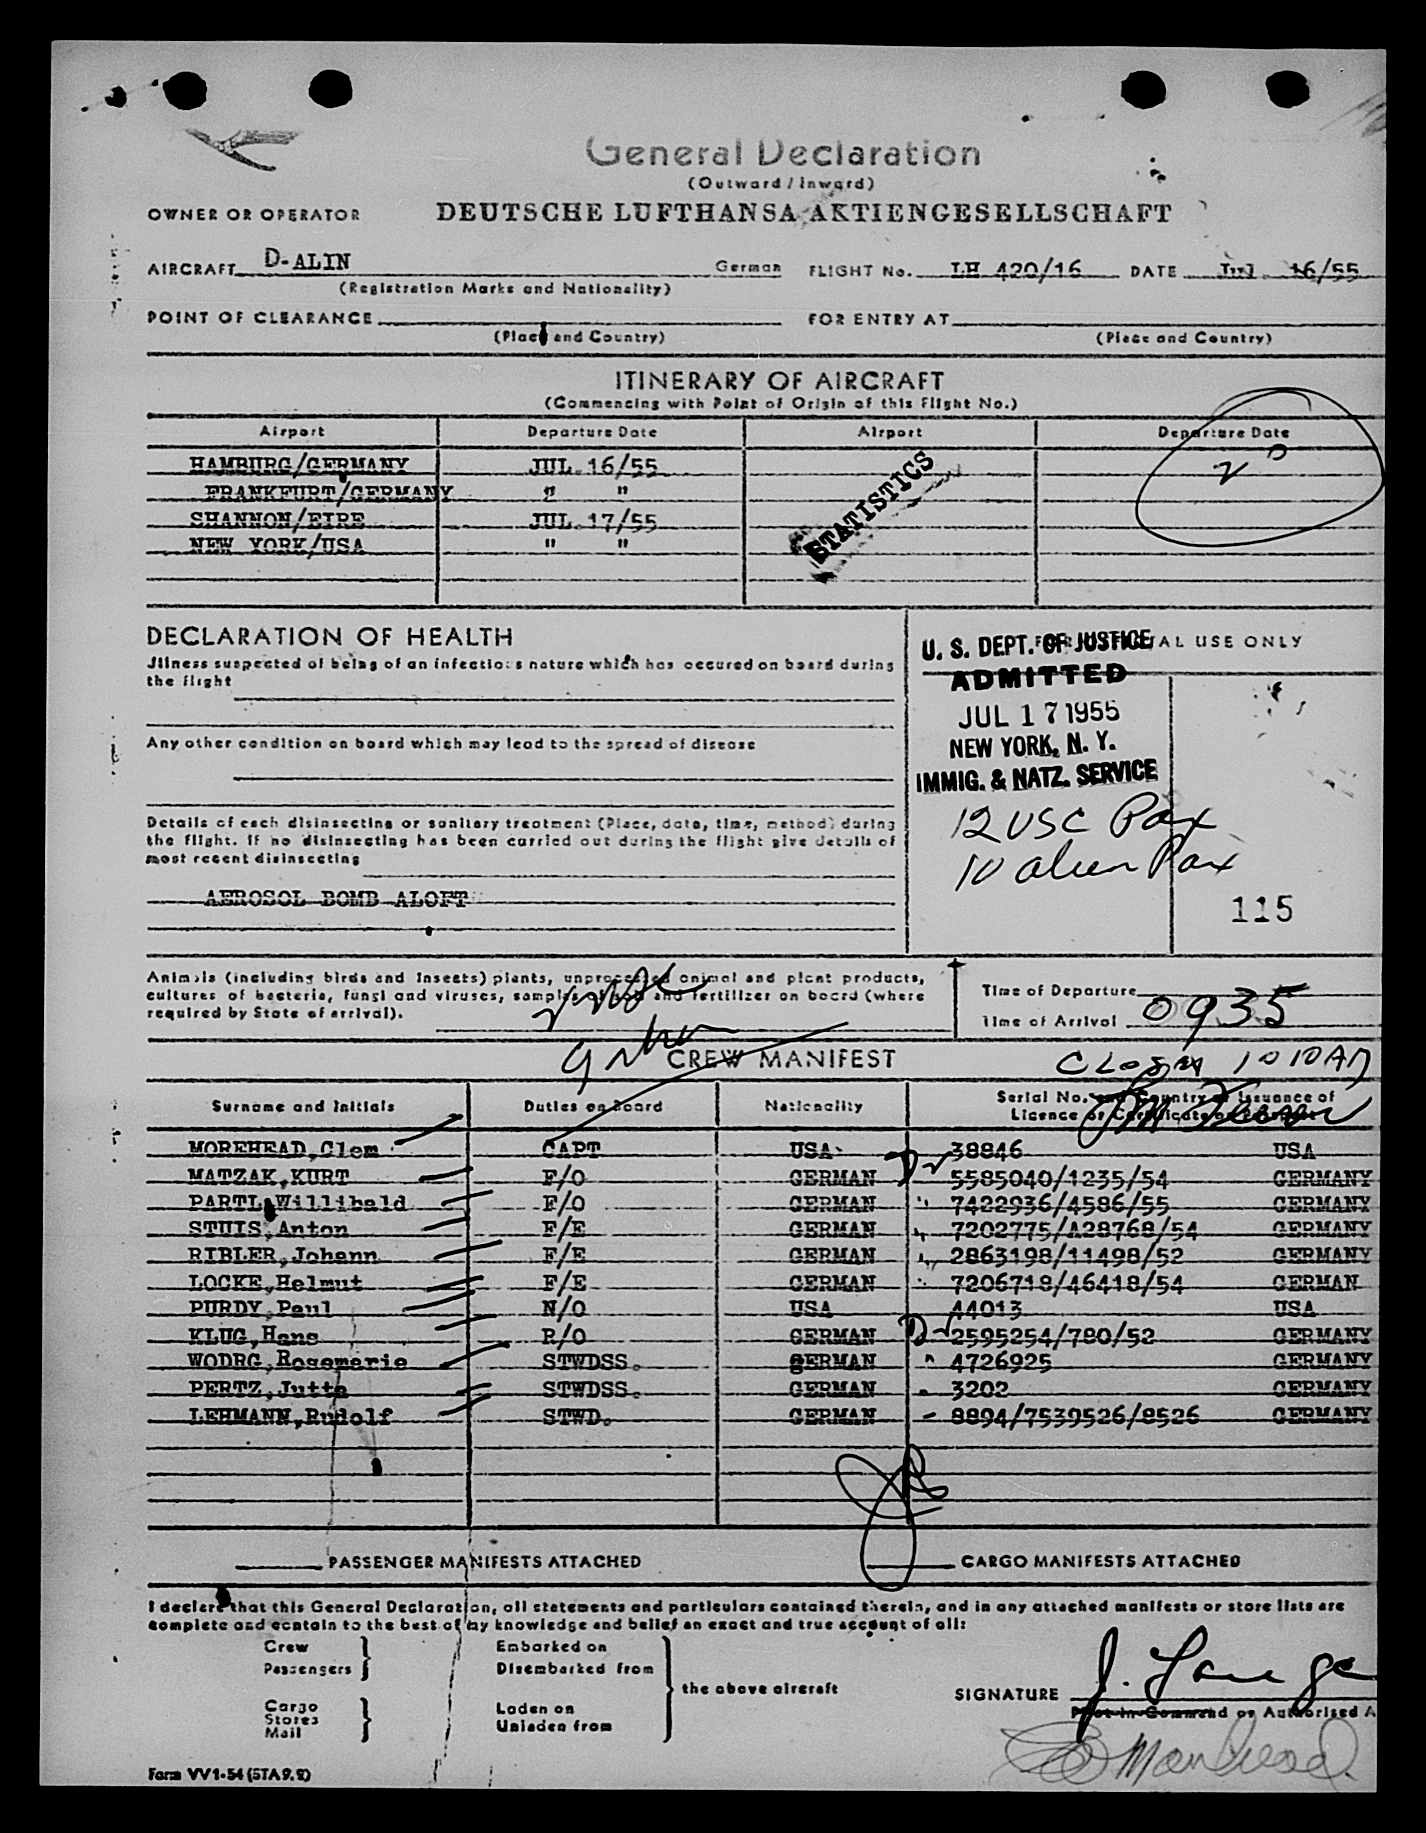 General Declaration
(Outward / Inward)
OWNER OR OPERATOR DEUTSCHE LUFTHANSA AKTIENGESELLSCHAFT
AIRCRAFT D-ALIN German FLIGHT No. LH 420/16 DATE Jul 16/55
(Registration Marks and Nationality)
POINT OF CLEARANCE FOR ENTRY AT
(Place and Country) (Place and Country)
ITINERARY OF AIRCRAFT
(Commencing with Point of Origin of this Flight No.)
Airport Departure Date Airport Departure Date
HAMBURG/GERMANY JUL 16/55
FRANKFURT/GERMANY " "
SHANNON/EIRE JUL 17/55
NEW YORK/USA " "
STATISTICS
DECLARATION OF HEALTH
Illness suspected of being of an infectious nature which has occured on board during
the flight
Any other condition on board which may lead to the spread of disease
Details of each disinsecting or sanitary treatment (Place, date, time, method) during
the flight. If no disinsecting has been carried out during the flight give details of
most recent disinsecting
AEROSOL BOMB ALOFT
FOR OFFICIAL USE ONLY
U. S. DEPT. OF JUSTICE
ADMITTED
JUL 17 1955
NEW YORK, N. Y.
IMMIG. & NATZ. SERVICE
12 USC Pax
10 alien Pax
115
Animals (including birds and insects) plants, unprocessed animal and plant products,
cultures of bacteria, fungi and viruses, samples of soil and fertilizer on board (where
required by State of arrival).
Time of Departure
Time of Arrival 0935
CREW MANIFEST
1010 AM
Surname and Initials Duties on Board Nationality Serial No. and Country of Issuance of
Licence or Certificate or Passport
MOREHEAD,Clem CAPT USA 38846 USA
MATZAK,KURT F/O GERMAN 5585040/1235/54 GERMANY
PARTL,Willibald F/O GERMAN 7422936/4586/55 GERMANY
STUIS,Anton F/E GERMAN 7202775/A28768/54 GERMANY
RIBLER,Johann F/E GERMAN 2863198/11498/52 GERMANY
LOCKE,Helmut F/E GERMAN 7206718/46418/54 GERMAN
PURDY,Paul N/O USA 44013 USA
KLUG,Hans R/O GERMAN 2595254/780/52 GERMANY
WODRG,Rosemarie STWDSS. gERMAN 4726925 GERMANY
PERTZ,Jutta STWDSS. GERMAN 3202 GERMANY
LEHMANN,Rudolf STWD. GERMAN 8894/7539526/8526 GERMANY
PASSENGER MANIFESTS ATTACHED CARGO MANIFESTS ATTACHED
I declare that this General Declaration, all statements and particulars contained therein, and in any attached manifests or store lists are
complete and contain to the best of my knowledge and belief an exact and true account of all:
Crew Embarked on
Passengers Disembarked from
the above aircraft
Cargo Laden on
Stores Unladen from
Mail
SIGNATURE J. Lange
Pilot-in-Command or Authorised A
Form VV1-54 (STA 9.2)